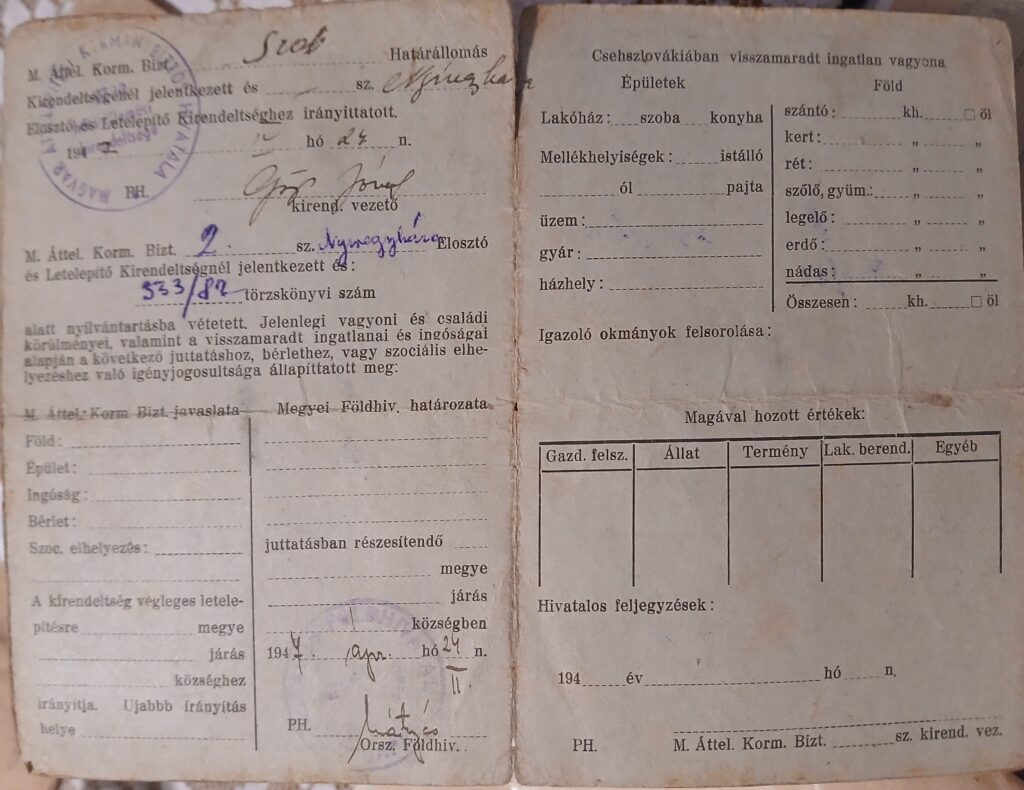 Szob Határállomás
M. Áttel. Korm. Bizt.
Kirendeltségénél jelentkezett és sz. Nyíregyháza
Elosztó és Letelepítő Kirendeltséghez irányittatott.
1947 IV hó 24 n.
PH.
József
kirend. vezető
M. Áttel. Korm. Bizt. 2. sz. Nyiregyháza Elosztó
és Letelepítő Kirendeltségnél jelentkezett és:
törzskönyvi szám
alatt nyilvántartásba vétetett. Jelenlegi vagyoni és családi
körülményei, valamint a visszamaradt ingatlanai és ingóságai
alapján a következő juttatáshoz, bérlethez, vagy szociális elhe-
lyezéshez való igényjogosultsága állapíttatott meg:
M. Áttel. Korm Bizt. javaslata
Föld:
Épület:
Ingóság:
Bérlet:
Szoc. elhelyezés:
A kirendeltség végleges letele-
pítésre megye
járás
községhez
irányítja. Ujabbb írányítás
helye
Megyei Földhiv. határozata
juttatásban részesítendő
megye
járás
községben
1947. apr. hó 24 n.
II.
PH. Mátyás
Orsz. Földhiv.
Csehszlovákiában visszamaradt ingatlan vagyona
Épületek
Lakóház: szoba konyha
Mellékhelyiségek: istálló
ól pajta
üzem:
gyár:
házhely:
Föld
szántó: kh. □ öl
kert: „ „
rét: „ „
szőlő, gyüm.: „ „
legelő: „ „
erdő: „ „
nádas: „ „
Összesen: kh. □ öl
Igazoló okmányok felsorolása:
Magával hozott értékek:
Gazd. felsz. Állat Termény Lak. berend. Egyéb
Hivatalos feljegyzések:
194 év hó n.
PH. M. Áttel. Korm. Bizt. sz. kirend. vez.